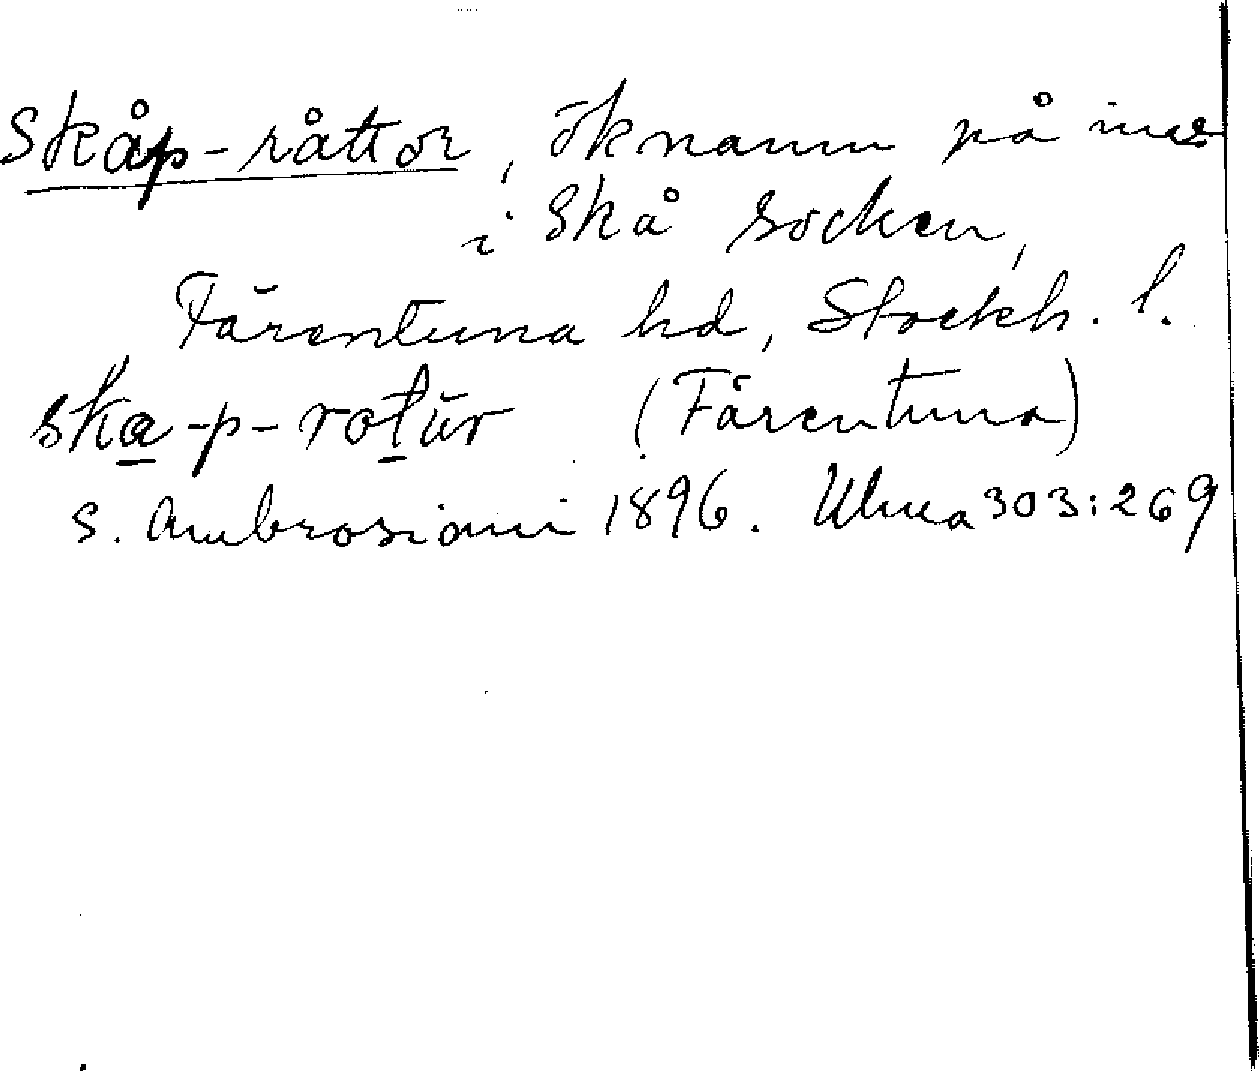 Skåp-råttor, öknamn på inv
i Skå socken,
Färentuna hd, Stockh. l.
ska-p-rotŭr (Färentuna)
S. Ambrosiani 1896. Ulma 303:269